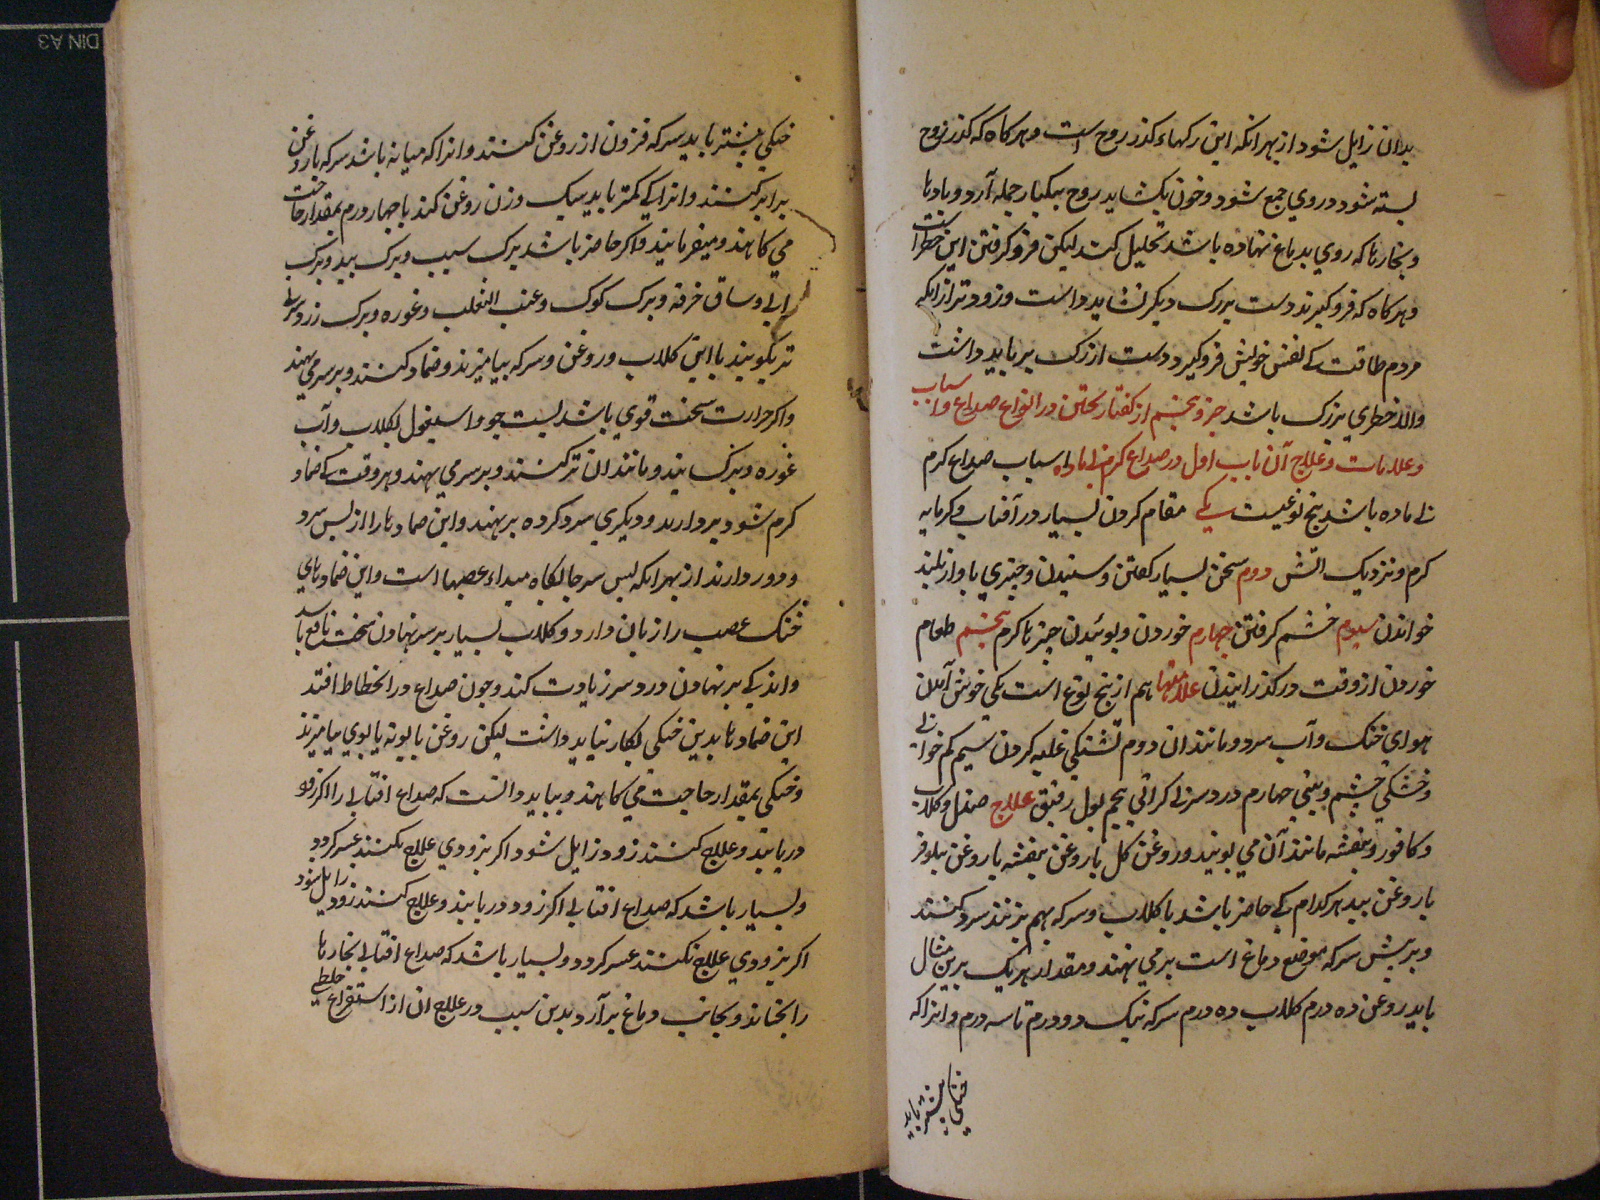 بدان زایل شود از بهر انکه این رکهاء کذر روح است و هر کاه که کذر روح
بسته شود در وی جمع شود و خون بکشاید روح بیکبار حمله آرد و بادها
و بخارها که روی بدماغ نهاده باشد تحلیل کند لیکن فرو کرفتن این خطر است
و هر کاه که فرو کیرند دست بر رک دیکر نشاید داشت و زودتر از انکه
مردم طاقت کی نفس خویش فرو کیرد دست از رک بر باید داشت
والا خطری بزرک باشد جزو پنجم از کفتار نخستین در انواع صداع و اسباب
و علامات و علاج آن باب اول در صداع کرم بی ماده اسباب صداع کرم
بی ماده باشد پنج نوعیست یکی مقام کردن بسیار در آفتاب و کرمابه
کرم و نزدیک اتش دوم سخن بسیار کفتن و شنیدن و چیزی باواز بلند
خواندن سیوم خشم کرفتن چهارم خوردن و بوئیدن چیزها کرم پنجم طعام
خوردن از وقت در کذرانیدن علامتها هم از پنج نوع است یکی خوش آمدن
هوای خنک و آب سرد و مانند ان دوم تشنکی غلبه کردن سیم کم خوابی
و خشکی چشم و بینی چهارم درد سر بی کرانی پنجم بول رقیق علاج صندل و کلاب
و کافور و بنفشه مانند آن می بویند و روغن کل یا روغن بنفشه یا روغن نیلوفر
یا روغن بید هر کدام کی حاضر باشد با کلاب و سرکه بهم بزنند سرد کنند
و بر پیش سر که موضع دماغ است بر می نهند و مقدار هر یک برین مثال
باید روغن ده درم کلاب ده درم سرکه تنک دو درم تا سه درم و انرا که
خنکی بیشتر باید
خنکی بیشتر باید سرکه فزون از روغن کنند و انرا که میانه باشد سرکه با روغن
برابر کنند و انرا کی کمتر باید بیک وزن روغن کند یا چهار درم بمقدار حاجت
می کاهند و میفزمایند و اکر حاضر باشد برک سیب و برک بید و برک
ابی و ساق خرفه و برک کوک و عنب الثعلب و غوره و برک رز و
تر بکوبند با این کلاب و روغن و سرکه بیامیزند و ضماد کنند و بر سر می نهند
و اکر حرارت سخت قوی باشد پست جو و اسبغول بکلاب و آب
غوره و برک بید و مانند ان تر کنند و بر سر می نهند و هر وقت کی ضماد
کرم شود بر دارند و دیکری سرد کرده بر نهند و این ضمادها را از پس سر
دور دارند از بهر انکه پس سر جایکاه مبداء عصبها است و این ضمادهای
خنک عصب را زیان دارد و کلاب بسیار بر سر نهادن سخت نافع باشد
و اندکی بر نهادن درد سر زیادت کند و چون صداع در انحطاط افتد
این ضمادها بدین خنکی بکار نباید داشت لیکن روغن بابونه با وی بیامیزند
و خنکی بمقدار حاجت می کاهند و بباید دانست که صداع افتابی را اکر زود
دریابند و علاج کنند زود زایل شود اکر بزودی علاج نکنند عسر کردد
و بسیار باشد که صداع افتابی اکر زود دریابند و علاج کنند زود زایل شود
اکر بزودی علاج نکنند عسر کردد و بسیار باشد که صداع افتابی بخارها
را بجنباند و بجانب دماغ بر آرد بدین سبب در علاج ان از استفراغ خلطی
DIN A3